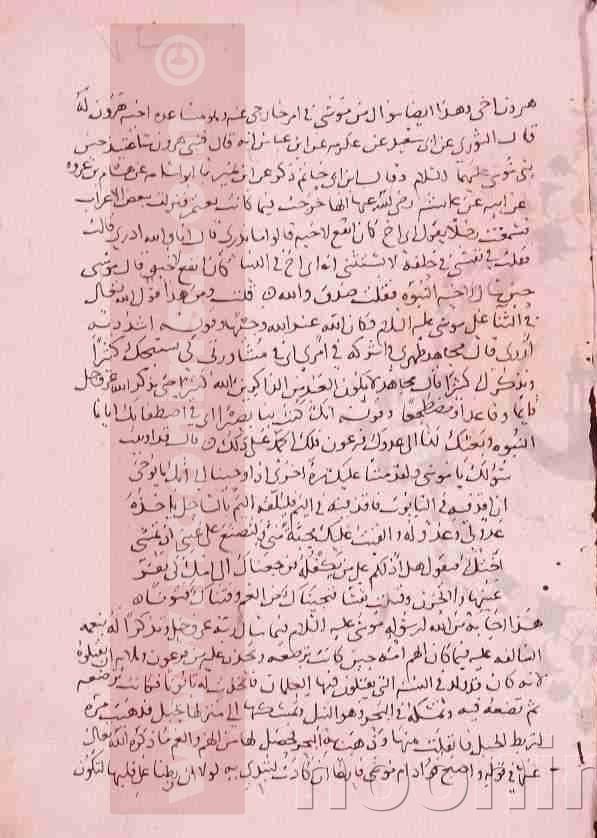 هرون اخى وهذا ايضا سوال من موسى فى امر خارجى عنه وهو مساعده اخيه هرون له
قال الثورى عن ابى سعيد عن عكرمه عن ابن عباس انه قال فنبى هرون ساعتئذ حين
نبى موسى عليهما السلام وقال ابن ابى حاتم ذكر عن ابن نمير ما ابو اسامه عن هشام بن عروه
عن ابيه عن عائشه رضى الله عنها انها خرجت فيما كانت تعتمر فنزلت ببعض الاعراب
فسمعت رجلا يقول اى اخ كان انفع لاخيه قالوا ما ندرى قال انا والله ادرى قالت
فقلت فى نفسى فى حلفه لا يستثنى انه اى اخ فى الدنيا كان انفع لاخيه قال موسى
حين سال لاخيه النبوه فقلت صدق والله قلت ومن هذا قول الله تعالى
فى الثنا على موسى عليه السلام وكان عند الله وجيها وقوله اشدد به
ازرى قال مجاهد ظهرى واشركه فى امرى اى فى مشاورتى كى نسبحك كثيرا
ونذكرك كثيرا قال مجاهد لا يكون العبد من الذاكرين الله كثيرا حتى يذكر الله عز وجل
قايما وقاعدا ومضطجعا وقوله انك كنت بنا بصيرا اى فى اصطفايك ايانا
النبوه وبعثتك لنا الى عدوك فرعون فلك الحمد على ذلك قال قد اوتيت
سولك يا موسى ولقد مننا عليك مرة اخرى اذ اوحينا الى امك ما يوحى
ان اقذفيه فى التابوت فاقذفيه فى اليم فليلقه اليم بالساحل ياخذه
عدو لى وعدو له والقيت عليك محبة منى ولتصنع على عينى اذ تمشى
اختك فتقول هل ادلكم على من يكفله فرجعناك الى امك كى تقر
عينها ولا تحزن وقتلت نفسا فنجيناك من الغم وفتناك فتونا
هذا اجابه من الله لرسوله موسى عليه السلام فيما سال ربه عز وجل وتذكير له بنعمه
السالفه عليه فيما كان الهم امه حين كانت ترضعه وتحذر عليه من فرعون وملايه ان يقتلوه
لانه كان قد ولد فى السنه التى يقتلون فيها الغلمان فاتخذت له تابوتا فكانت ترضعه
ثم تضعه فيه وترسله فى البحر وهو النيل وتمسكه الى منزلها بحبل فذهبت مره
لتربط الحبل فانفلت منها وذهب به البحر فحصل لها من الهم والغم ما ذكره الله تعالى
عنها فى قوله واصبح فواد ام موسى فارغا ان كادت لتبدى به لولا ان ربطنا على قلبها لتكون